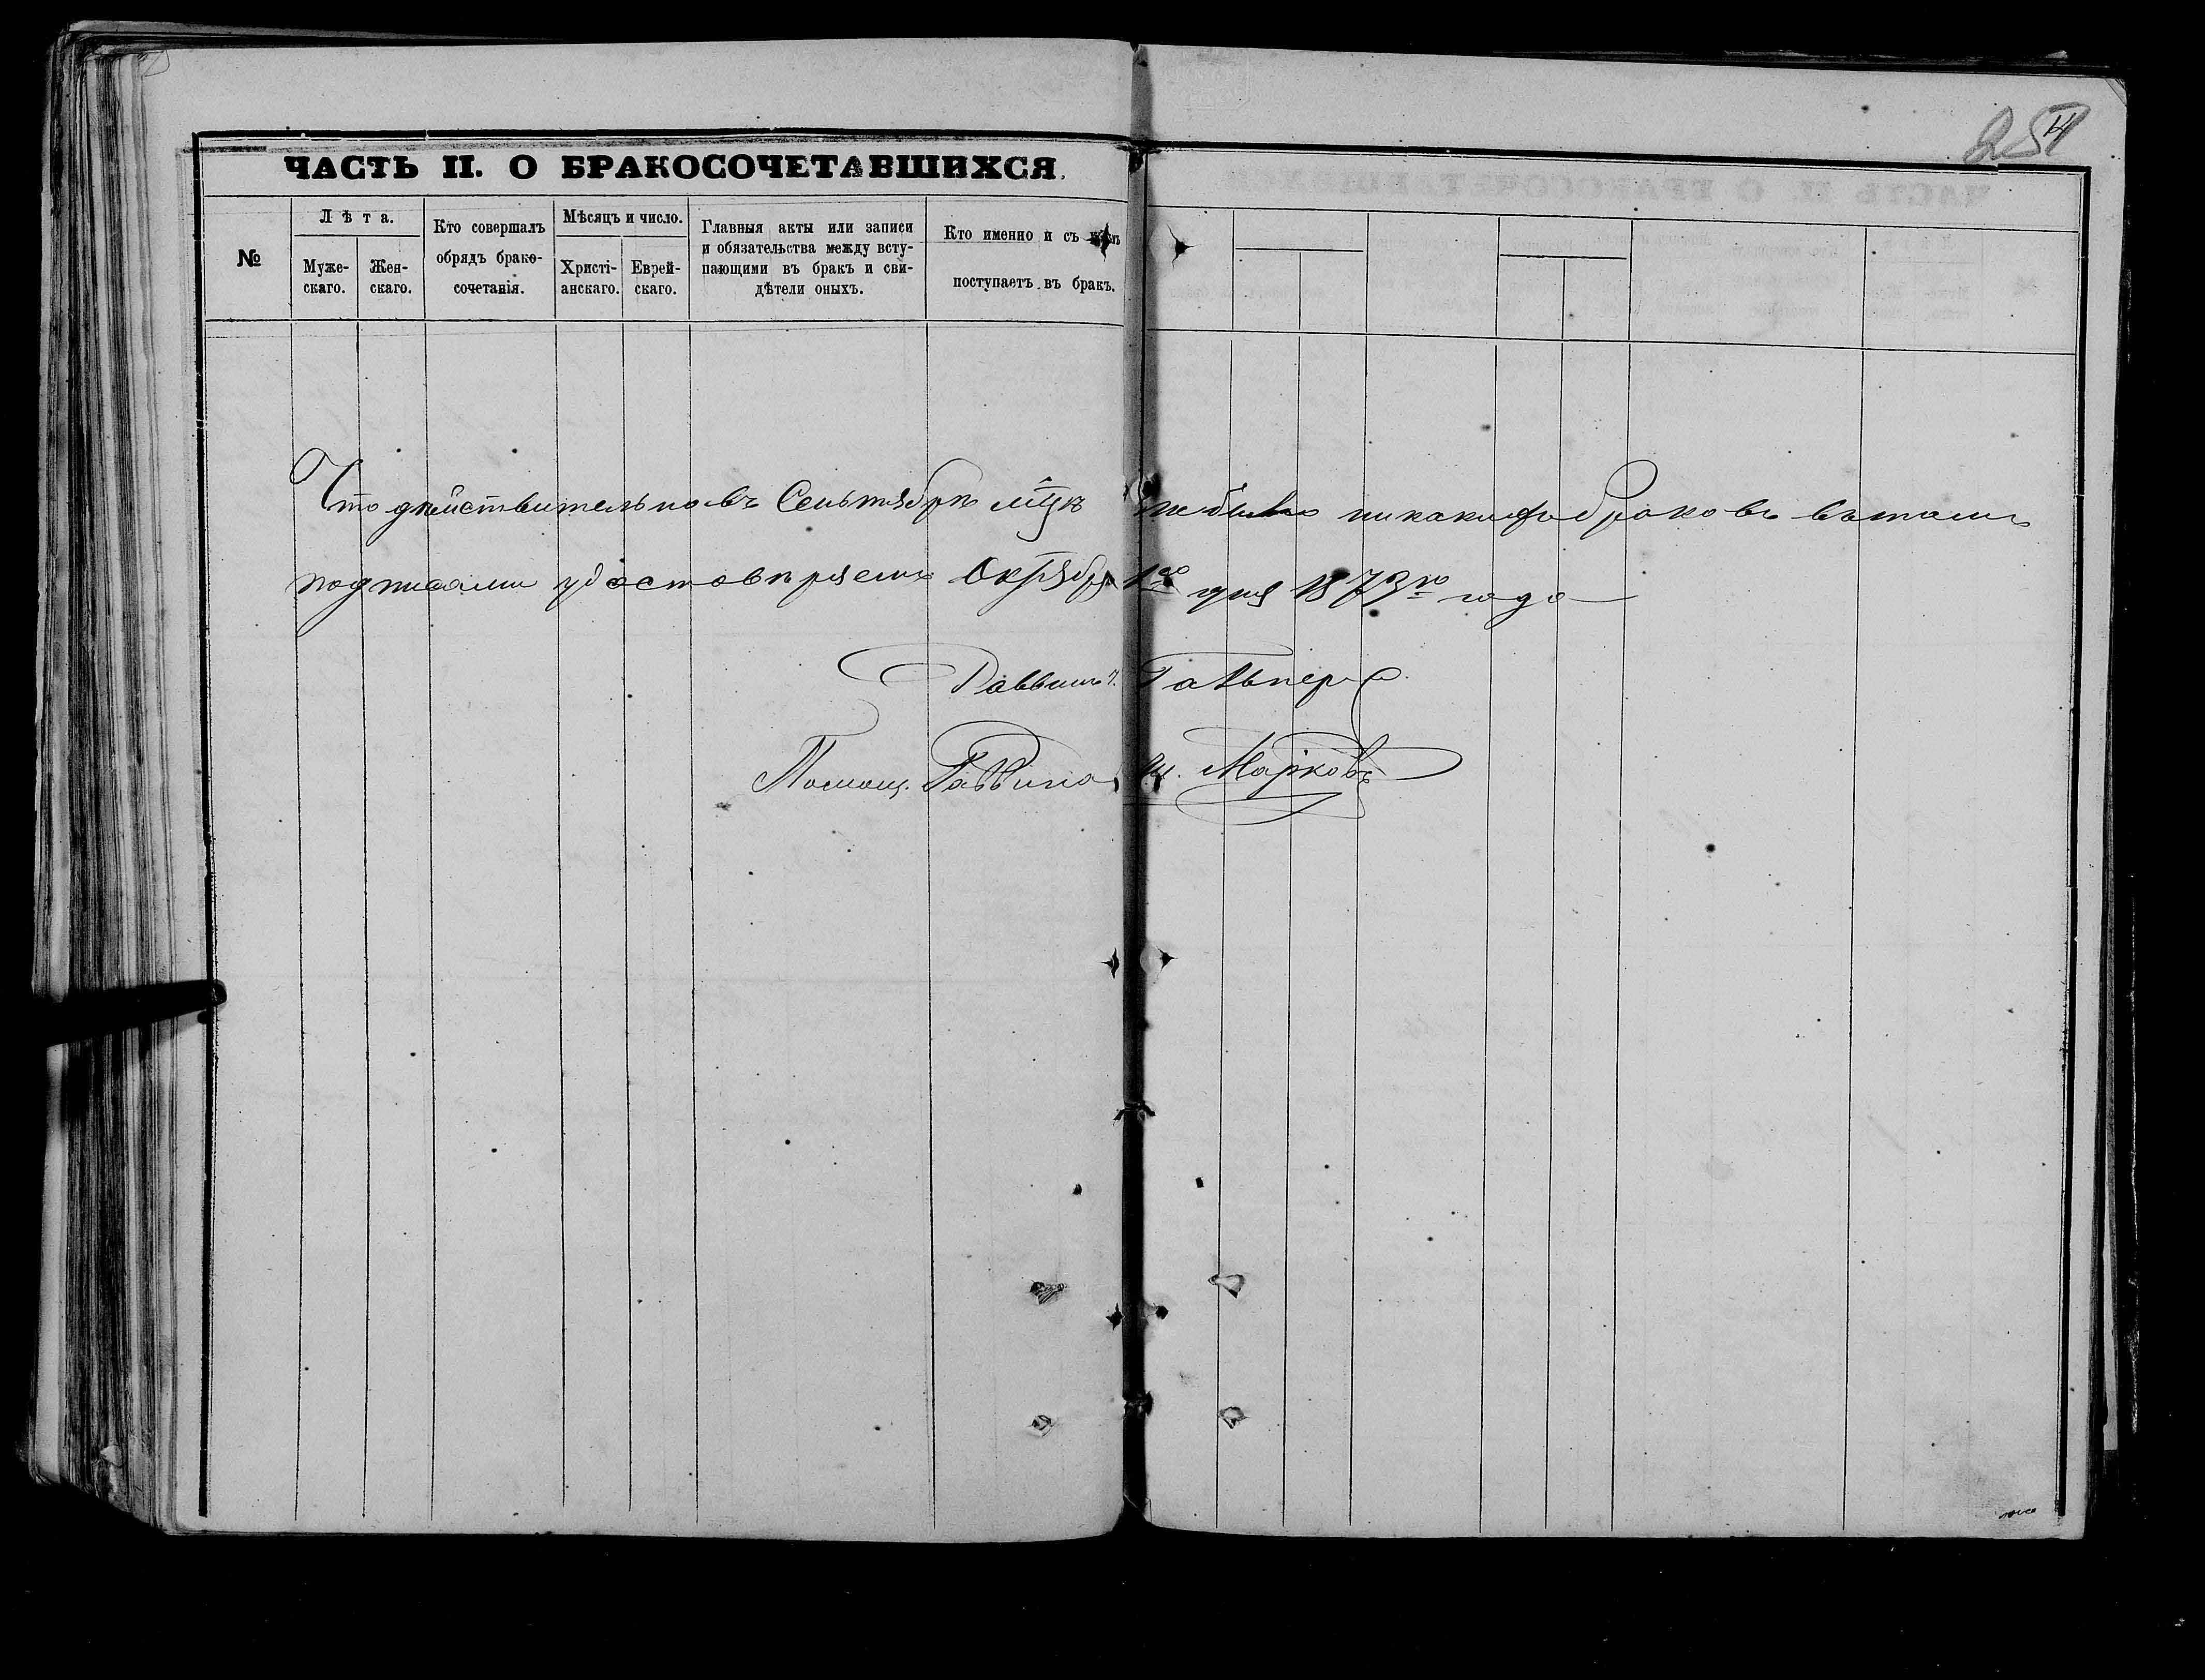 254
ЧАСТЬ II. О БРАКОСОЧЕТАВШИХСЯ.
№
Лѣта.
Муже-
скаго.
Жен-
скаго.
Кто совершалъ
обрядъ брако-
сочетанія.
Мѣсяцъ и число.
Христі-
анскаго.
Еврей-
скаго.
Главныя акты или записи
и обязательства между всту-
пающими въ бракъ и сви-
дѣтели оныхъ.
Кто именно и съ кѣмъ
поступаетъ въ бракъ.
Что дѣйствительно въ Сеньтябрѣ мцѣ небыло никакихъ браковъ въ томъ
подписами удостовѣряемъ Октября 1го дня 1873го года
Раввинъ Гальпер
Помощ. Раввина Ш. Марковъ